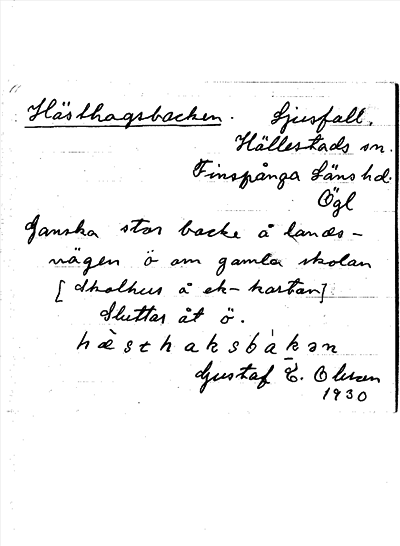 Hästhagsbacken. Ljusfall,
Hällestads sn.
Finspånga Läns hd.
Ögl
Ganska stor backe å lands-
vägen ö om gamla skolan
[Skolhus å ek-kartan]
Sluttar åt ö.
hæ̀sthaksbàkən
Gustaf E. Olsson
1930